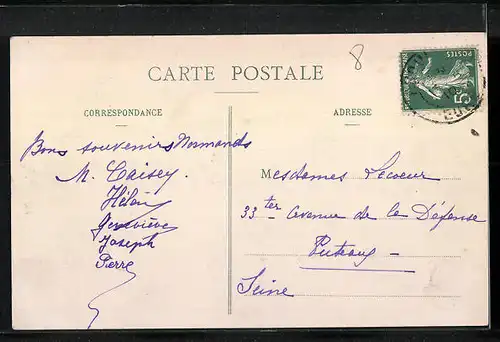 8
CARTE POSTALE
POSTES
5
CORRESPONDANCE
ADRESSE
Bons souvenirs Normands
M. Caisey.
Hélène
Geneviève
Joseph
Pierre
Mesdames Lecoeur
33 ter Avenue de la Défense
Puteaux
Seine